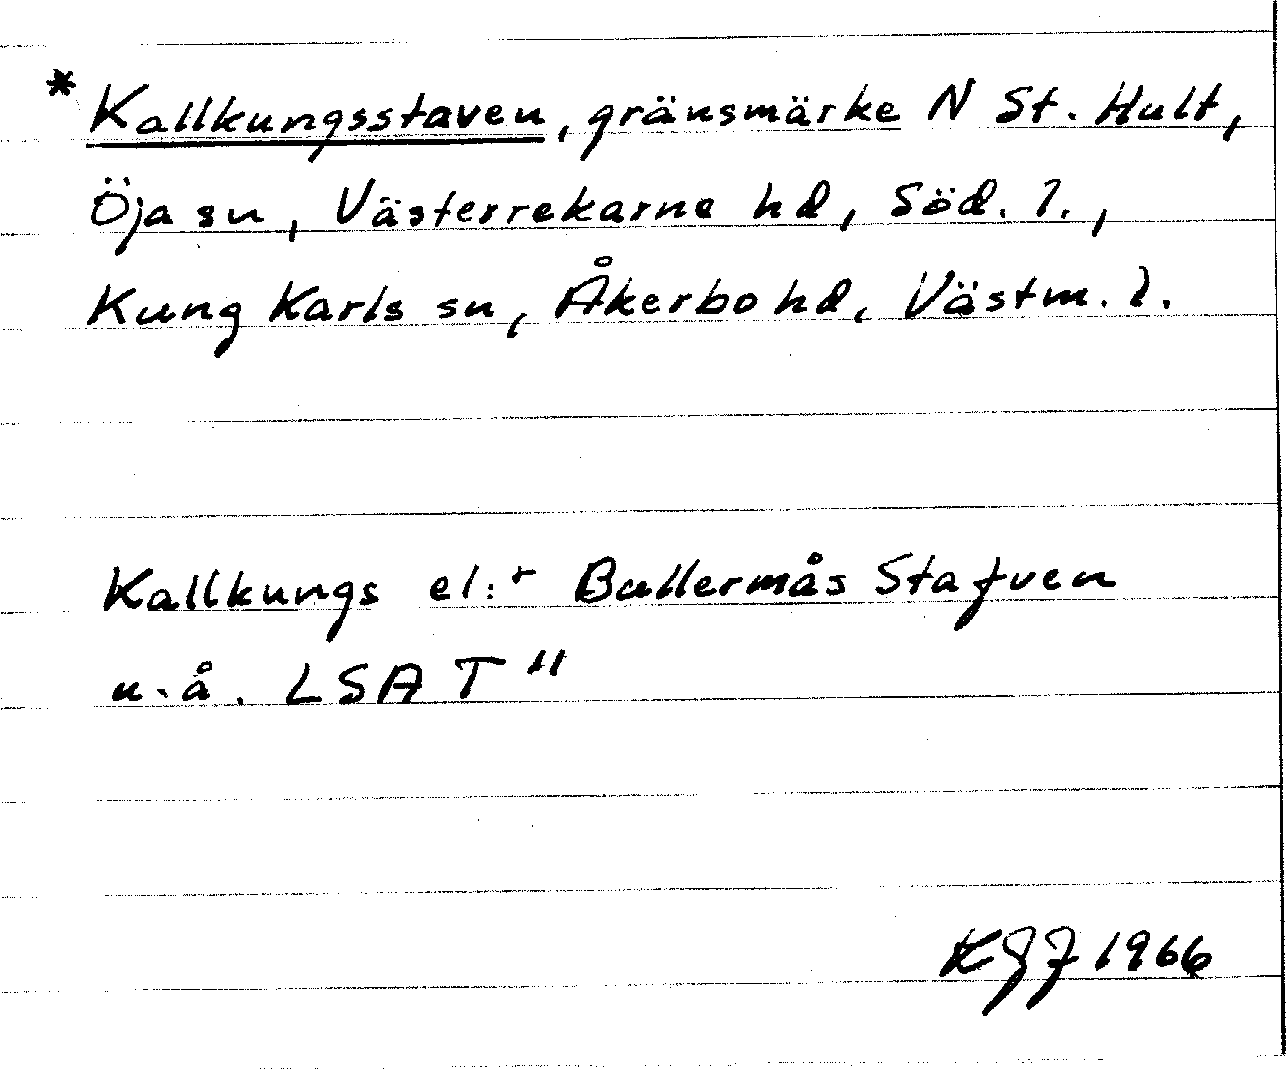 * Kallkungsstaven, gränsmärke N St. Hult,
Öja sn, Västerrekarne hd, Söd. l.,
Kung Karls sn, Åkerbo hd, Västm. l.
Kallkungs el:r Bullermås Stafven
u.å. LSA T"
KGJ 1966